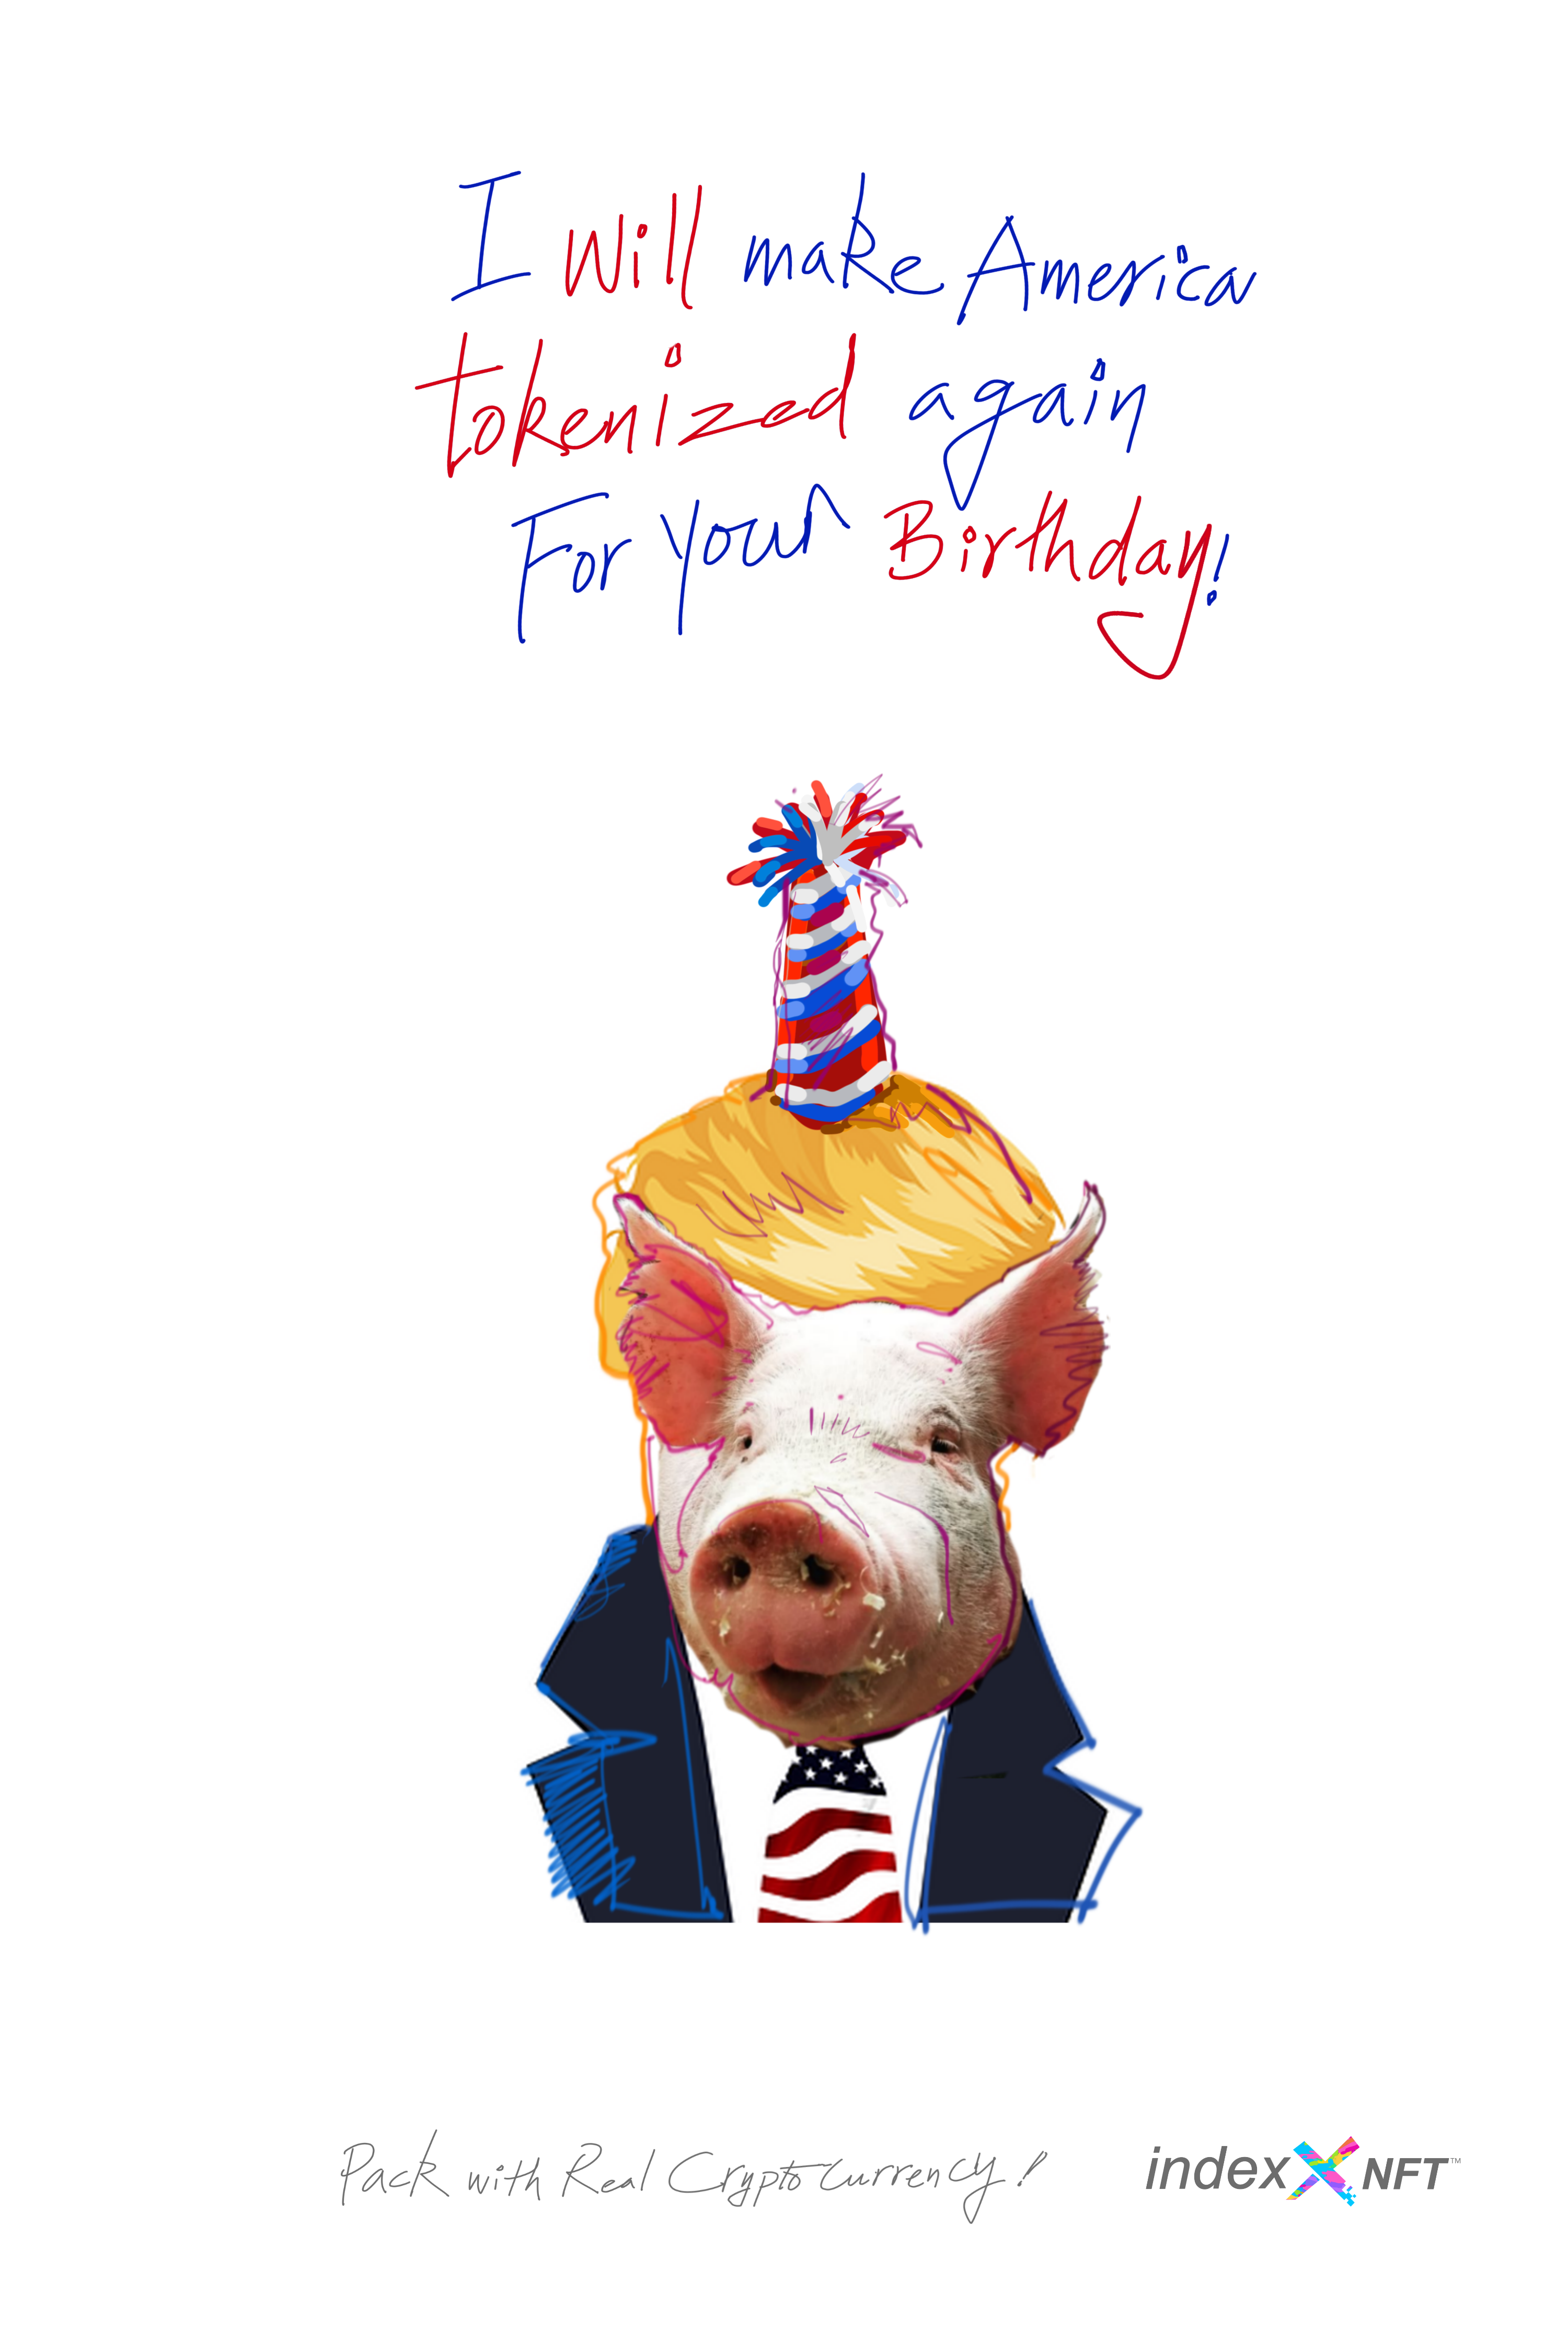 I will make America
tokenized again
For your Birthday!
Pack with Real Crypto currency!
indexX NFT™